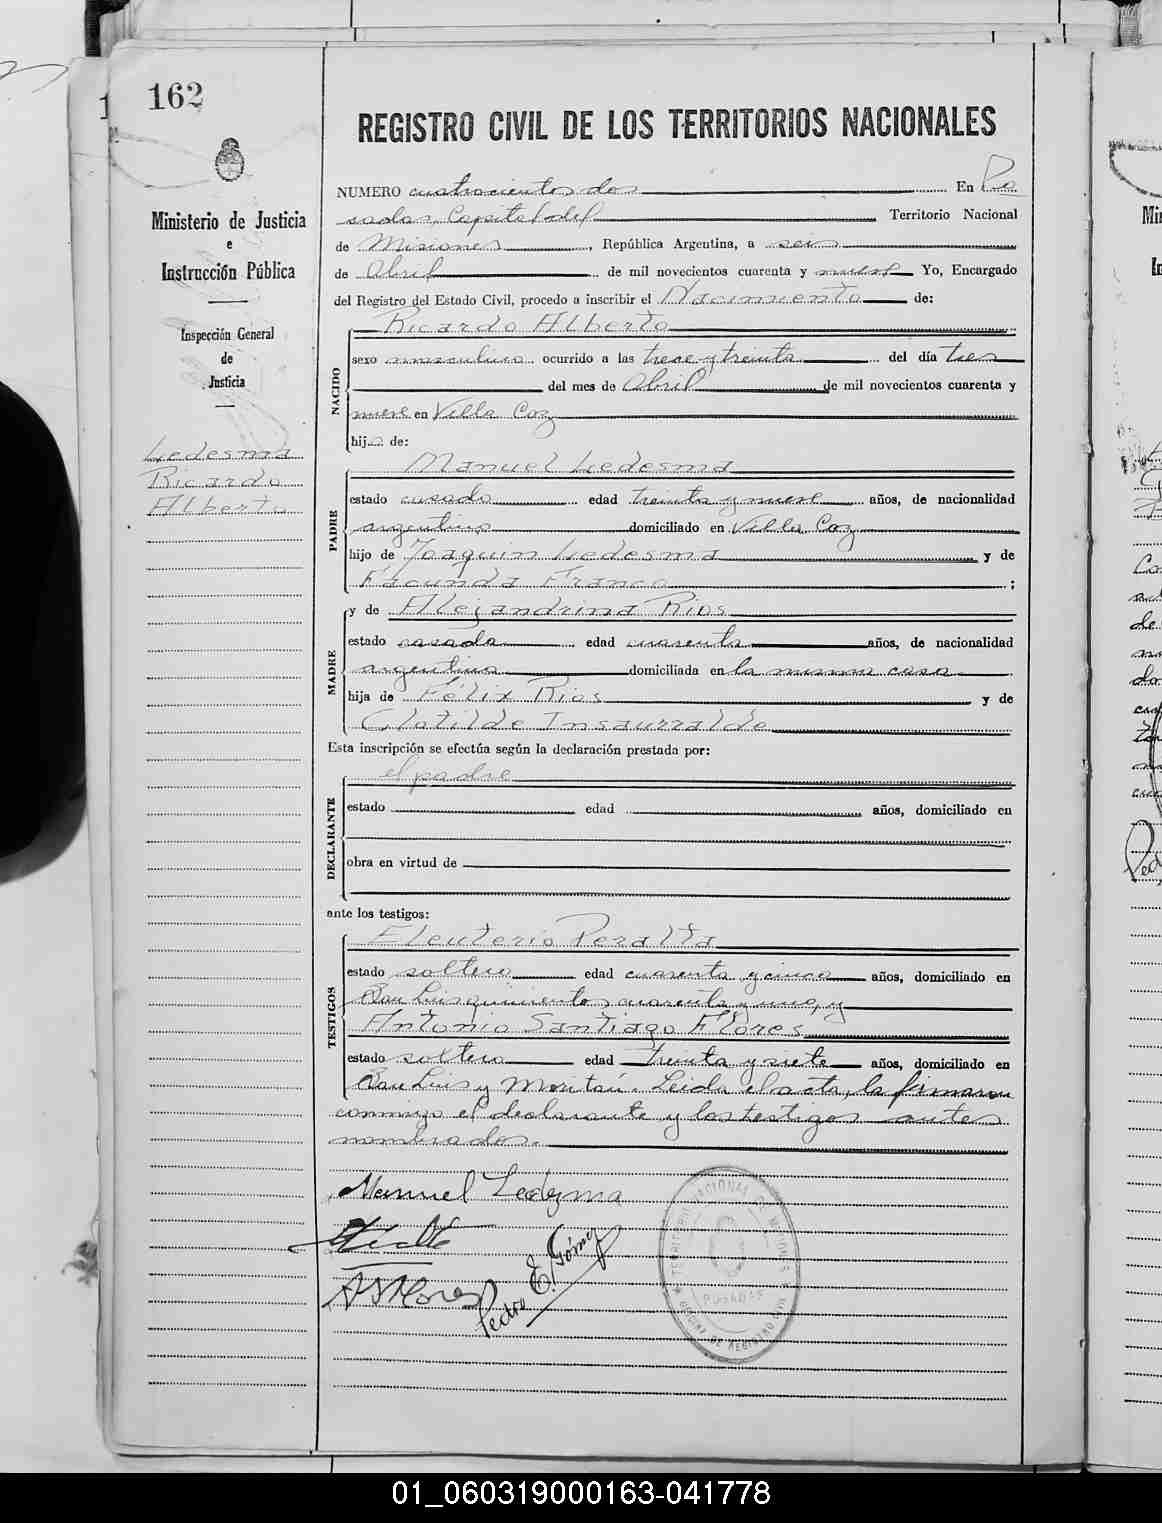 162
Ministerio de Justicia
e
Instrucción Pública
Inspección General
de
Justicia
Ledesma
Ricardo
Alberto
REGISTRO CIVIL DE LOS TERRITORIOS NACIONALES
NUMERO cuatrocientos dos En Po
sadas, Capital del Territorio Nacional
de Misiones, República Argentina, a seis
de Abril de mil novecientos cuarenta y nueve Yo, Encargado
del Registro del Estado Civil, procedo a inscribir el Nacimiento de:
NACIDO
Ricardo Alberto
sexo masculino ocurrido a las trece y treinta del día tres
del mes de Abril de mil novecientos cuarenta y
nueve en Villa Coz
hijo de:
PADRE
Manuel Ledesma
estado casado edad treinta y nueve años, de nacionalidad
argentino domiciliado en Villa Coz
hijo de Joaquin Ledesma y de
Facunda Franco ;
MADRE
y de Alejandrina Rios
estado casada edad cuarenta años, de nacionalidad
argentina domiciliada en la misma casa
hija de Félix Rios y de
Clotilde Insaurralde
Esta inscripción se efectúa según la declaración prestada por:
DECLARANTE
el padre
estado edad años, domiciliado en
obra en virtud de
ante los testigos:
TESTIGOS
Eleuterio Peralta
estado soltero edad cuarenta y cinco años, domiciliado en
San Luis quinientos cuarenta y uno, y
Antonio Santiago Flores
estado soltero edad treinta y siete años, domiciliado en
San Luis y Moritán. Leida el acta, la firmaron
conmigo el declarante y los testigos antes
nombrados.
Manuel Ledezma
A S Flores
Pedro E. Gómez
TERRITORIO NACIONAL DE MISIONES
POSADAS
OFICINA DE REGISTRO CIVIL
01_060319000163-041778